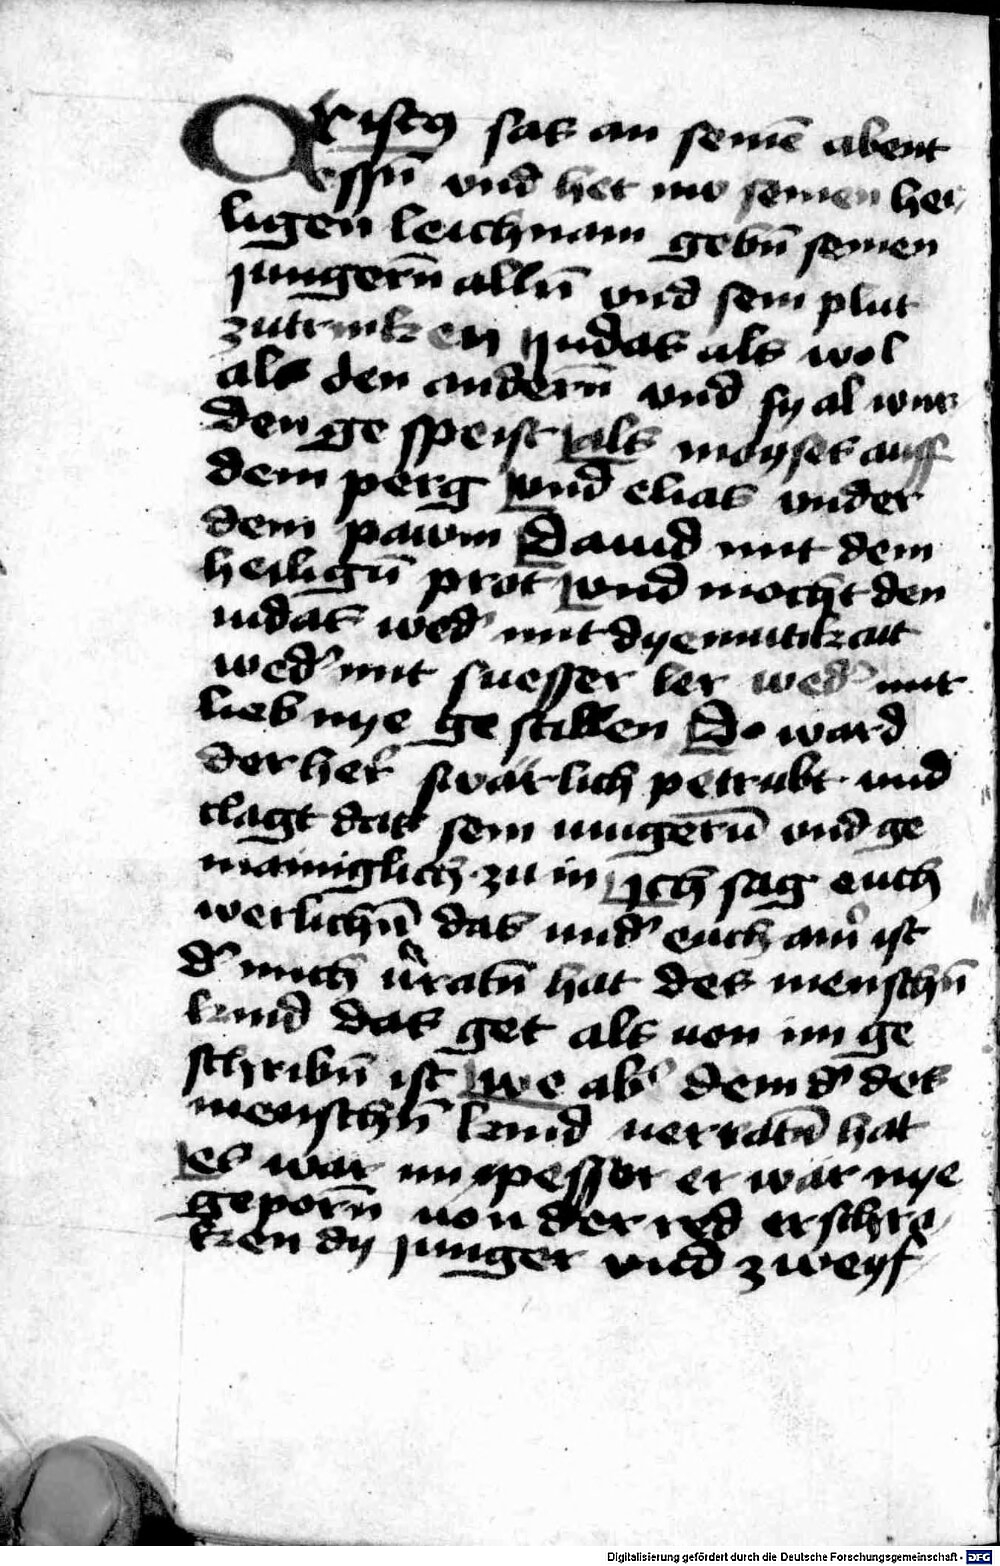 Cristus sas an seinē abent
essn̄ vnd het nw seinen hei-
ligen leichnam gebn̄ seinen
jungern̄ alln̄ vnd sein plut
zutrinken Judas als wol
als den andern̄ vnd sy al wur
den ge speist als moyses auff
dem perg vnd elias vnder
dem pawm Dauid mit dem
heilign̄ prot vnd mocht den
iudas wed' mit dyemutikait
wed' mit suesser ler wed' mit
lieb nye ge stillen Do ward
der her' swarlich petrubt vnd
clagt das sein iungern̄ vnd ge
mainiglich zu in Ich sag euch
werlichn̄ das und' euch ain' ist
d' mich v'ratn̄ hat des menschn̄
kind das get als uon im ge
schribn̄ ist we ab' dem d' des
menschn̄ kind uerratn̄ hat
es war im pesser er war nye
geporn̄ uon der red erschra-
ken dy junger vnd zweyf
Digitalisierung gefördert durch die Deutsche Forschungsgemeinschaft - DFG